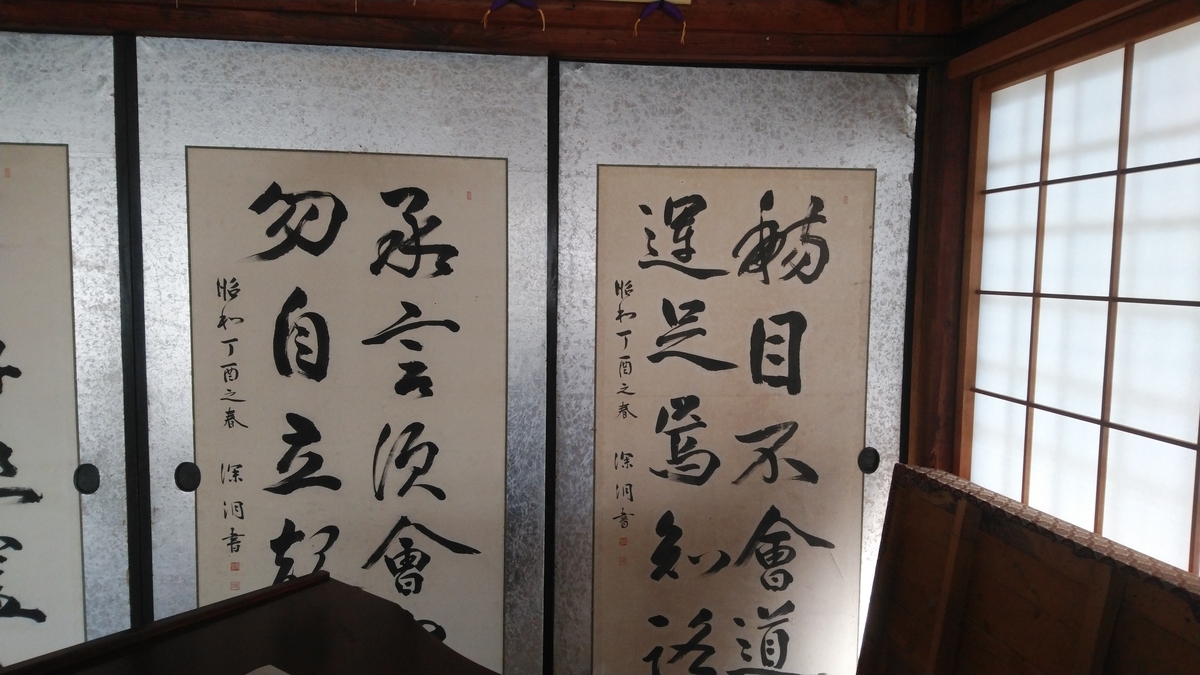 觸目不會道
運足焉知路
昭和丁酉之春 深洞書
承言須會
勿自立規
昭和丁酉之春 深洞書